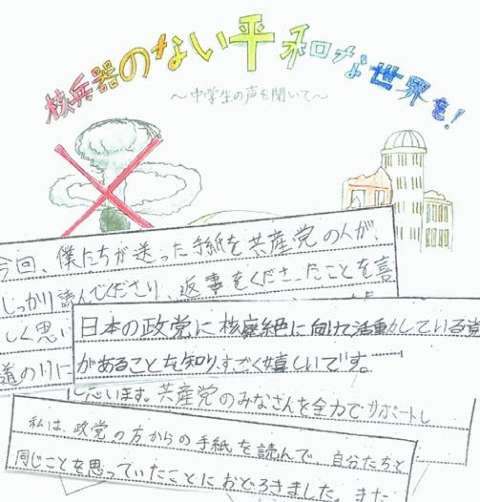 核兵器のない平和な世界を!
～中学生の声を聞いて～
今回、僕たちが送った手紙を共産党の人が、
しっかり読んでくださり、返事をくださったことを喜
しく思い
道の川に
日本の政党に核廃絶に向けて活動している党
があることを知り、すごく嬉しいです。
に思います。共産党のみなさんを全力でサポートし
私は、政党の方からの手紙を読んで、自分たちと
同じことを思っていたことにおどろきました。また